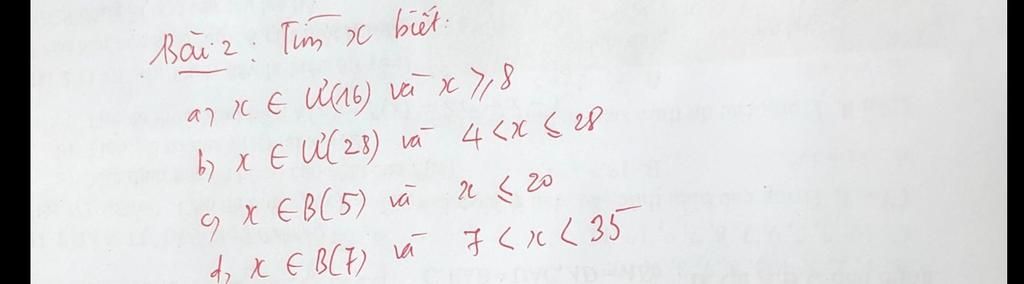 Bài 2: Tìm x biết:
a, x ∈ Ư(16) và x ⩾ 8
b, x ∈ Ư(28) và 4 < x ≤ 28
c, x ∈ B(5) và x ≤ 20
d, x ∈ B(7) và 7 < x < 35